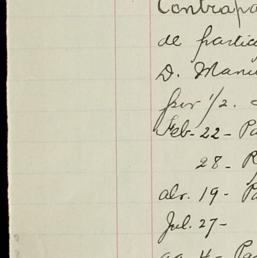 Contrapa
de partic
D. Manu
por 1/2.
Feb- 22- Pa
28- R
abr. 19- Pa
Jul. 27-